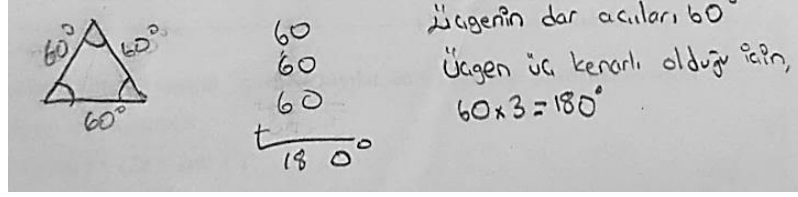 60° 60°
60°
60
60
60
+
18 0°
Üçgenin dar açıları 60°
Üçgen üç kenarlı olduğu için,
60x3=180°